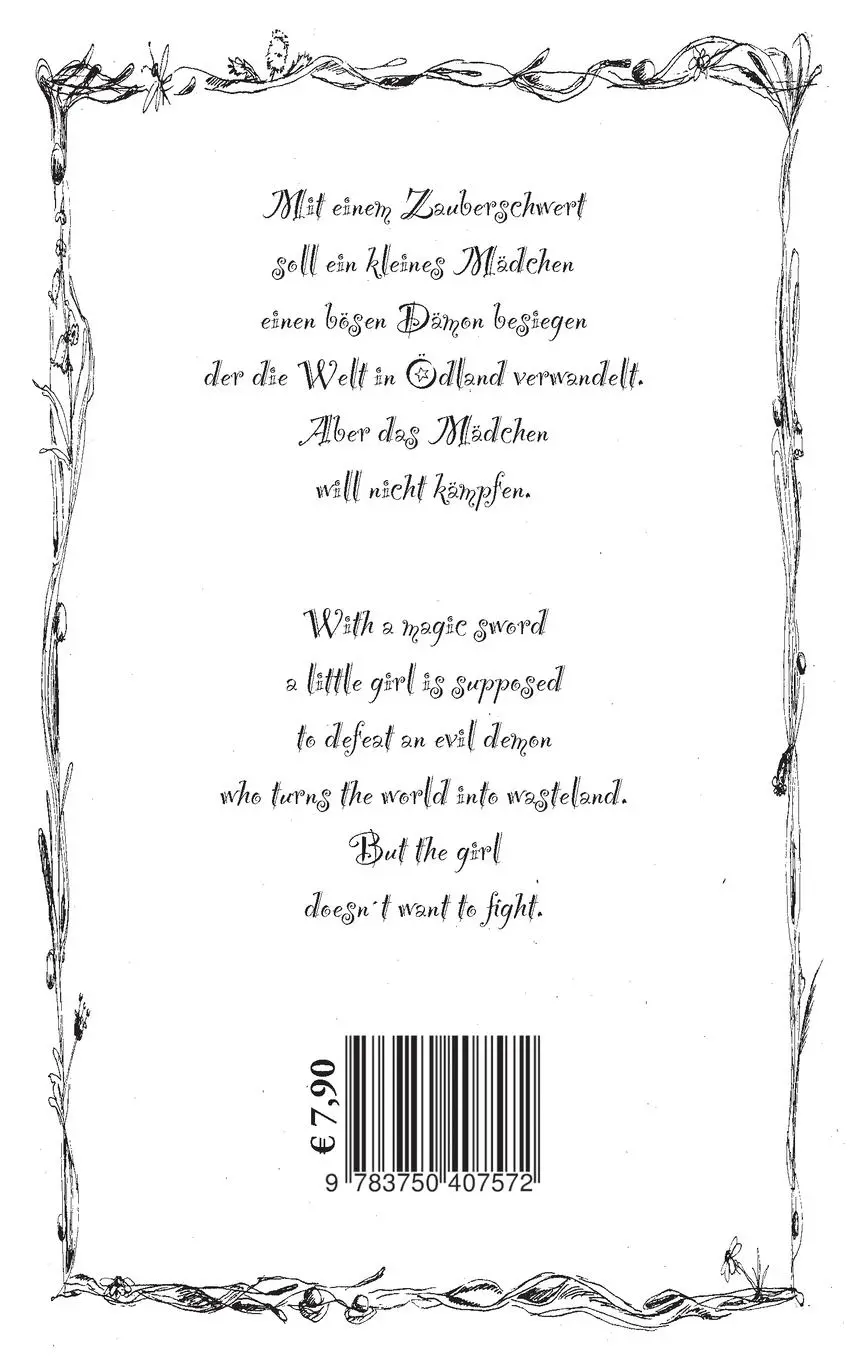 Mit einem Zauberschwert
soll ein kleines Mädchen
einen bösen Dämon besiegen
der die Welt in Ödland verwandelt.
Aber das Mädchen
will nicht kämpfen.
With a magic sword
a little girl is supposed
to defeat an evil demon
who turns the world into wasteland.
But the girl
doesn´t want to fight.
€ 7,90
9 783750 407572